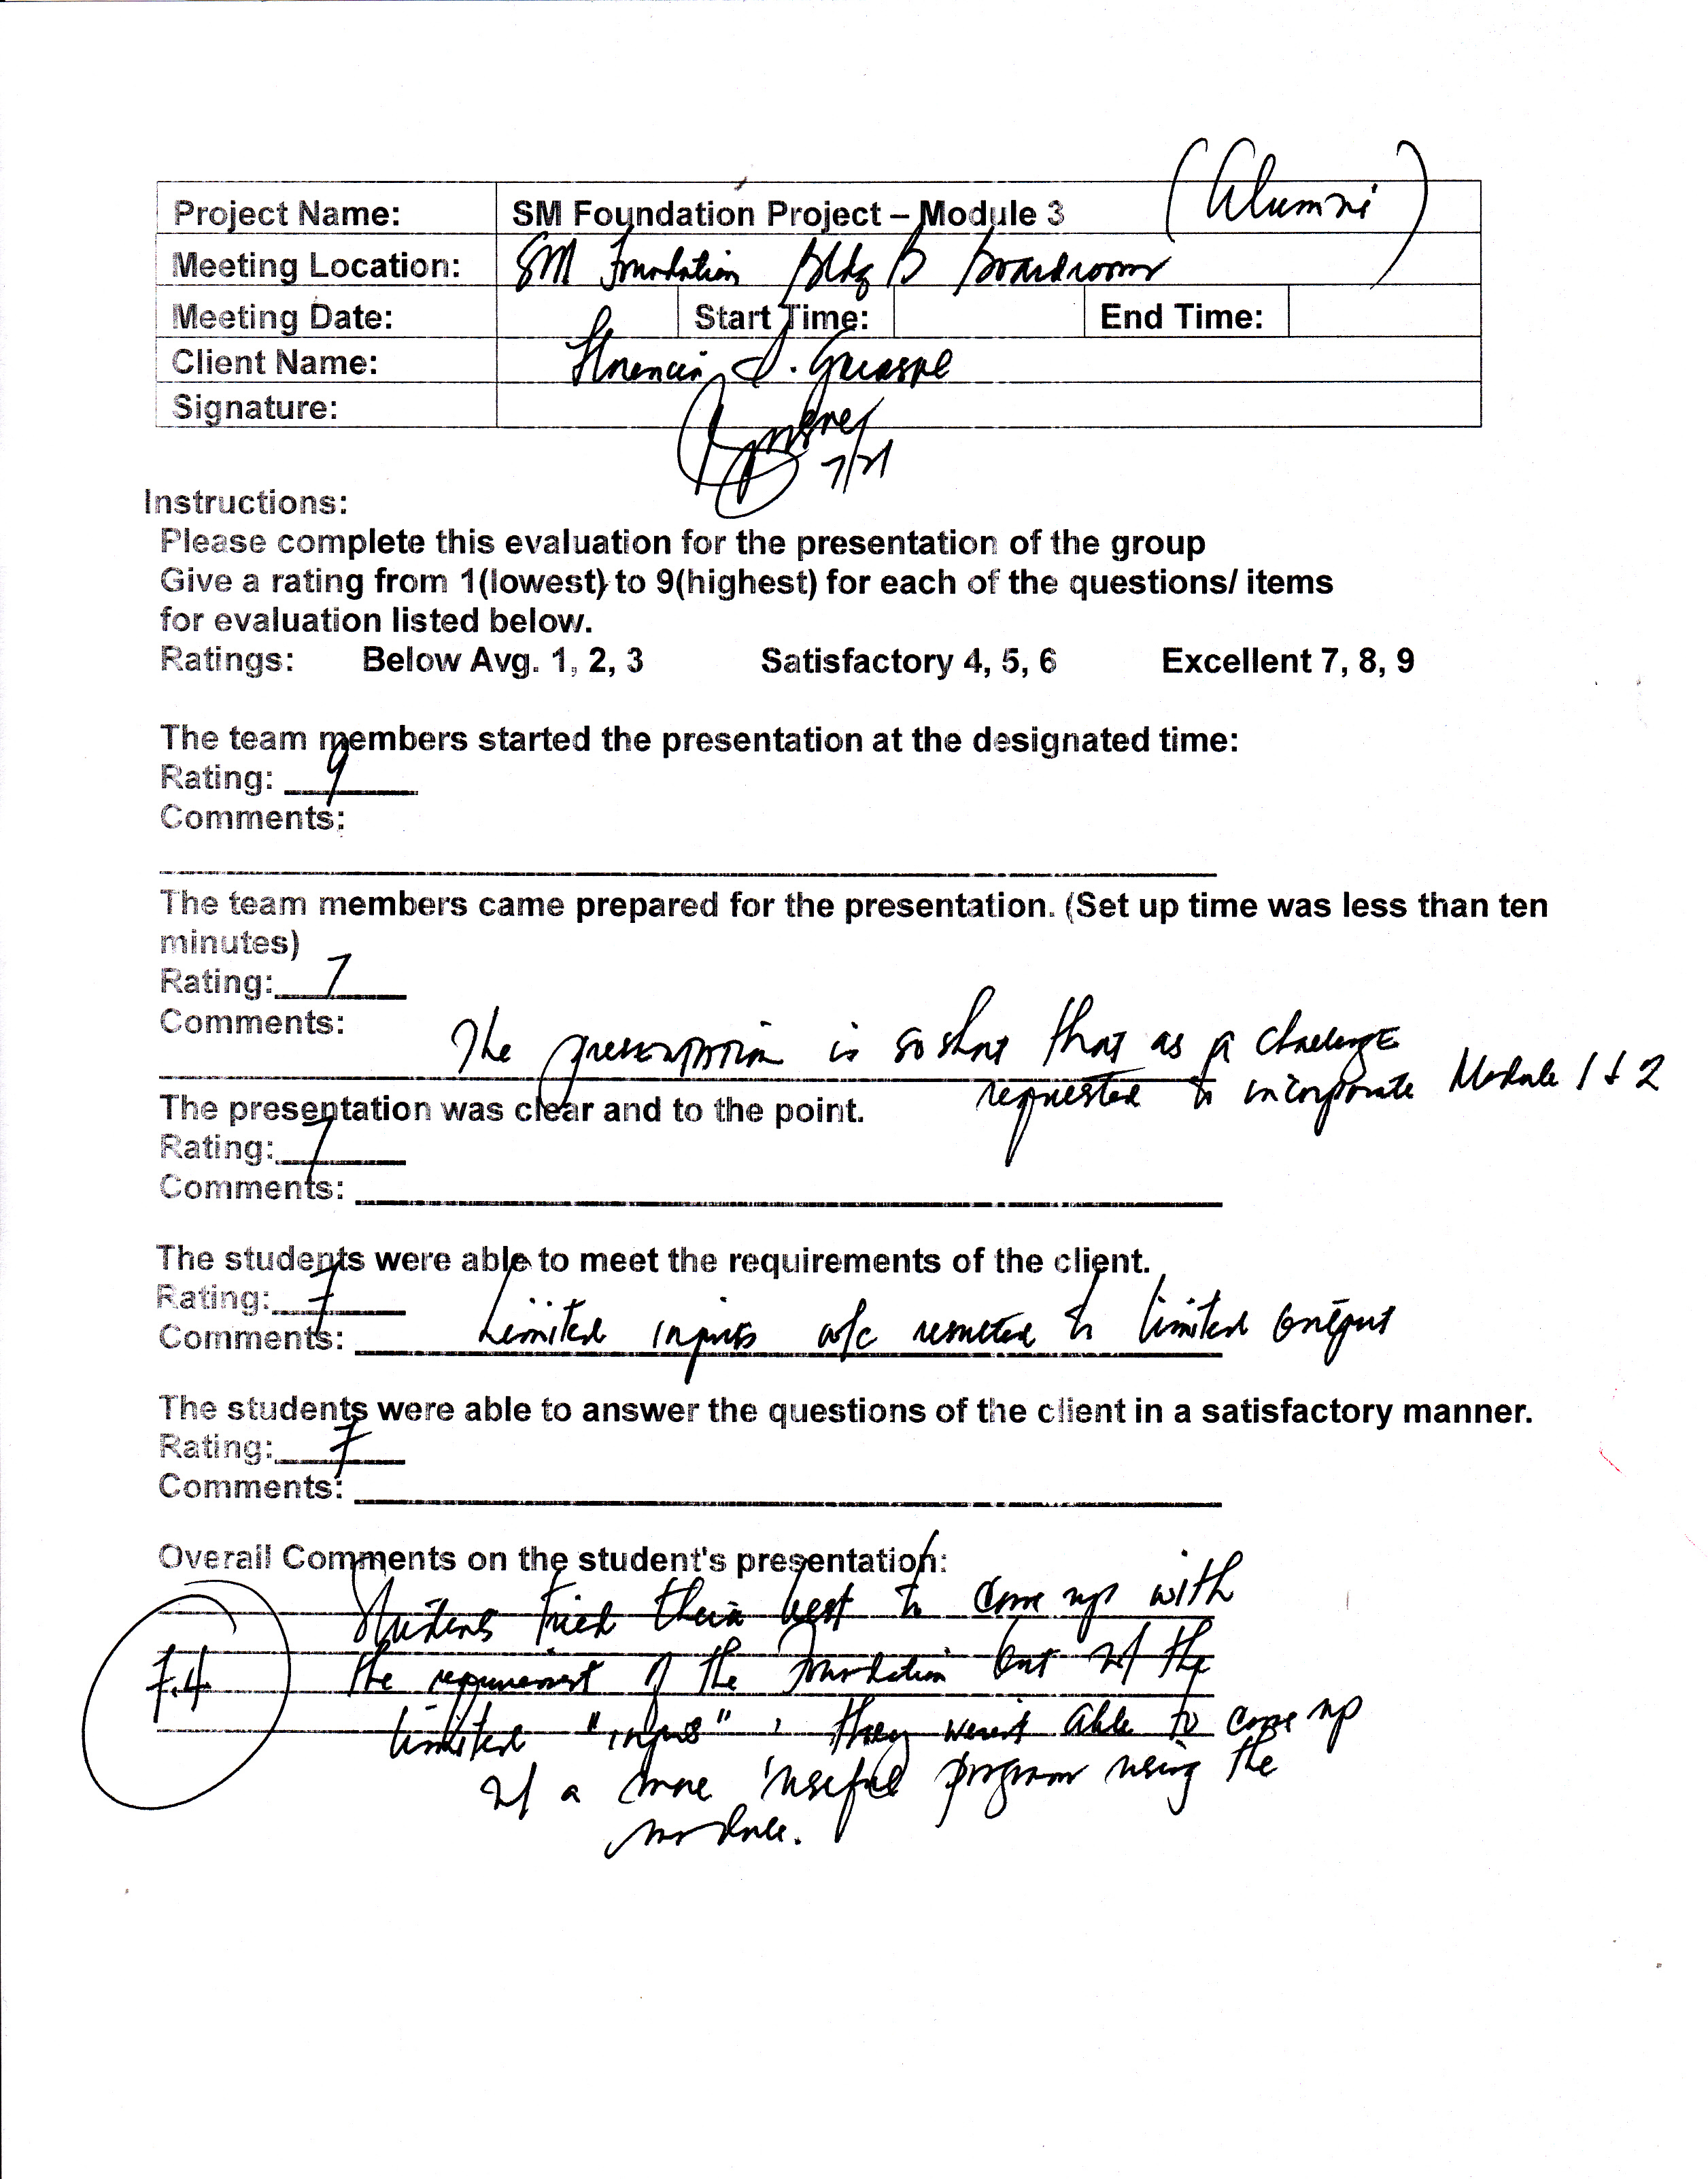 (Alumni)
Project Name: SM Foundation Project – Module 3
Meeting Location: SM Foundation Bldg B Boardroom
Meeting Date: Start Time: End Time:
Client Name:
Signature:
7/21
Instructions:
Please complete this evaluation for the presentation of the group
Give a rating from 1(lowest) to 9(highest) for each of the questions/ items
for evaluation listed below.
Ratings: Below Avg. 1, 2, 3 Satisfactory 4, 5, 6 Excellent 7, 8, 9
The team members started the presentation at the designated time:
Rating: 9
Comments:
The team members came prepared for the presentation. (Set up time was less than ten
minutes)
Rating: 7
Comments: The presentation is so short that as a challenge
requested to incorporate Module 1 & 2
The presentation was clear and to the point.
Rating: 7
Comments:
The students were able to meet the requirements of the client.
Rating: 7
Comments: Limited inputs w/c resulted to limited output
The students were able to answer the questions of the client in a satisfactory manner.
Rating: 7
Comments:
Overall Comments on the student's presentation:
Students tried their best to come up with
7.4 the requirement of the Foundation but w/ the
limited "inputs", they weren't able to come up
w/ a more useful program using the
module.